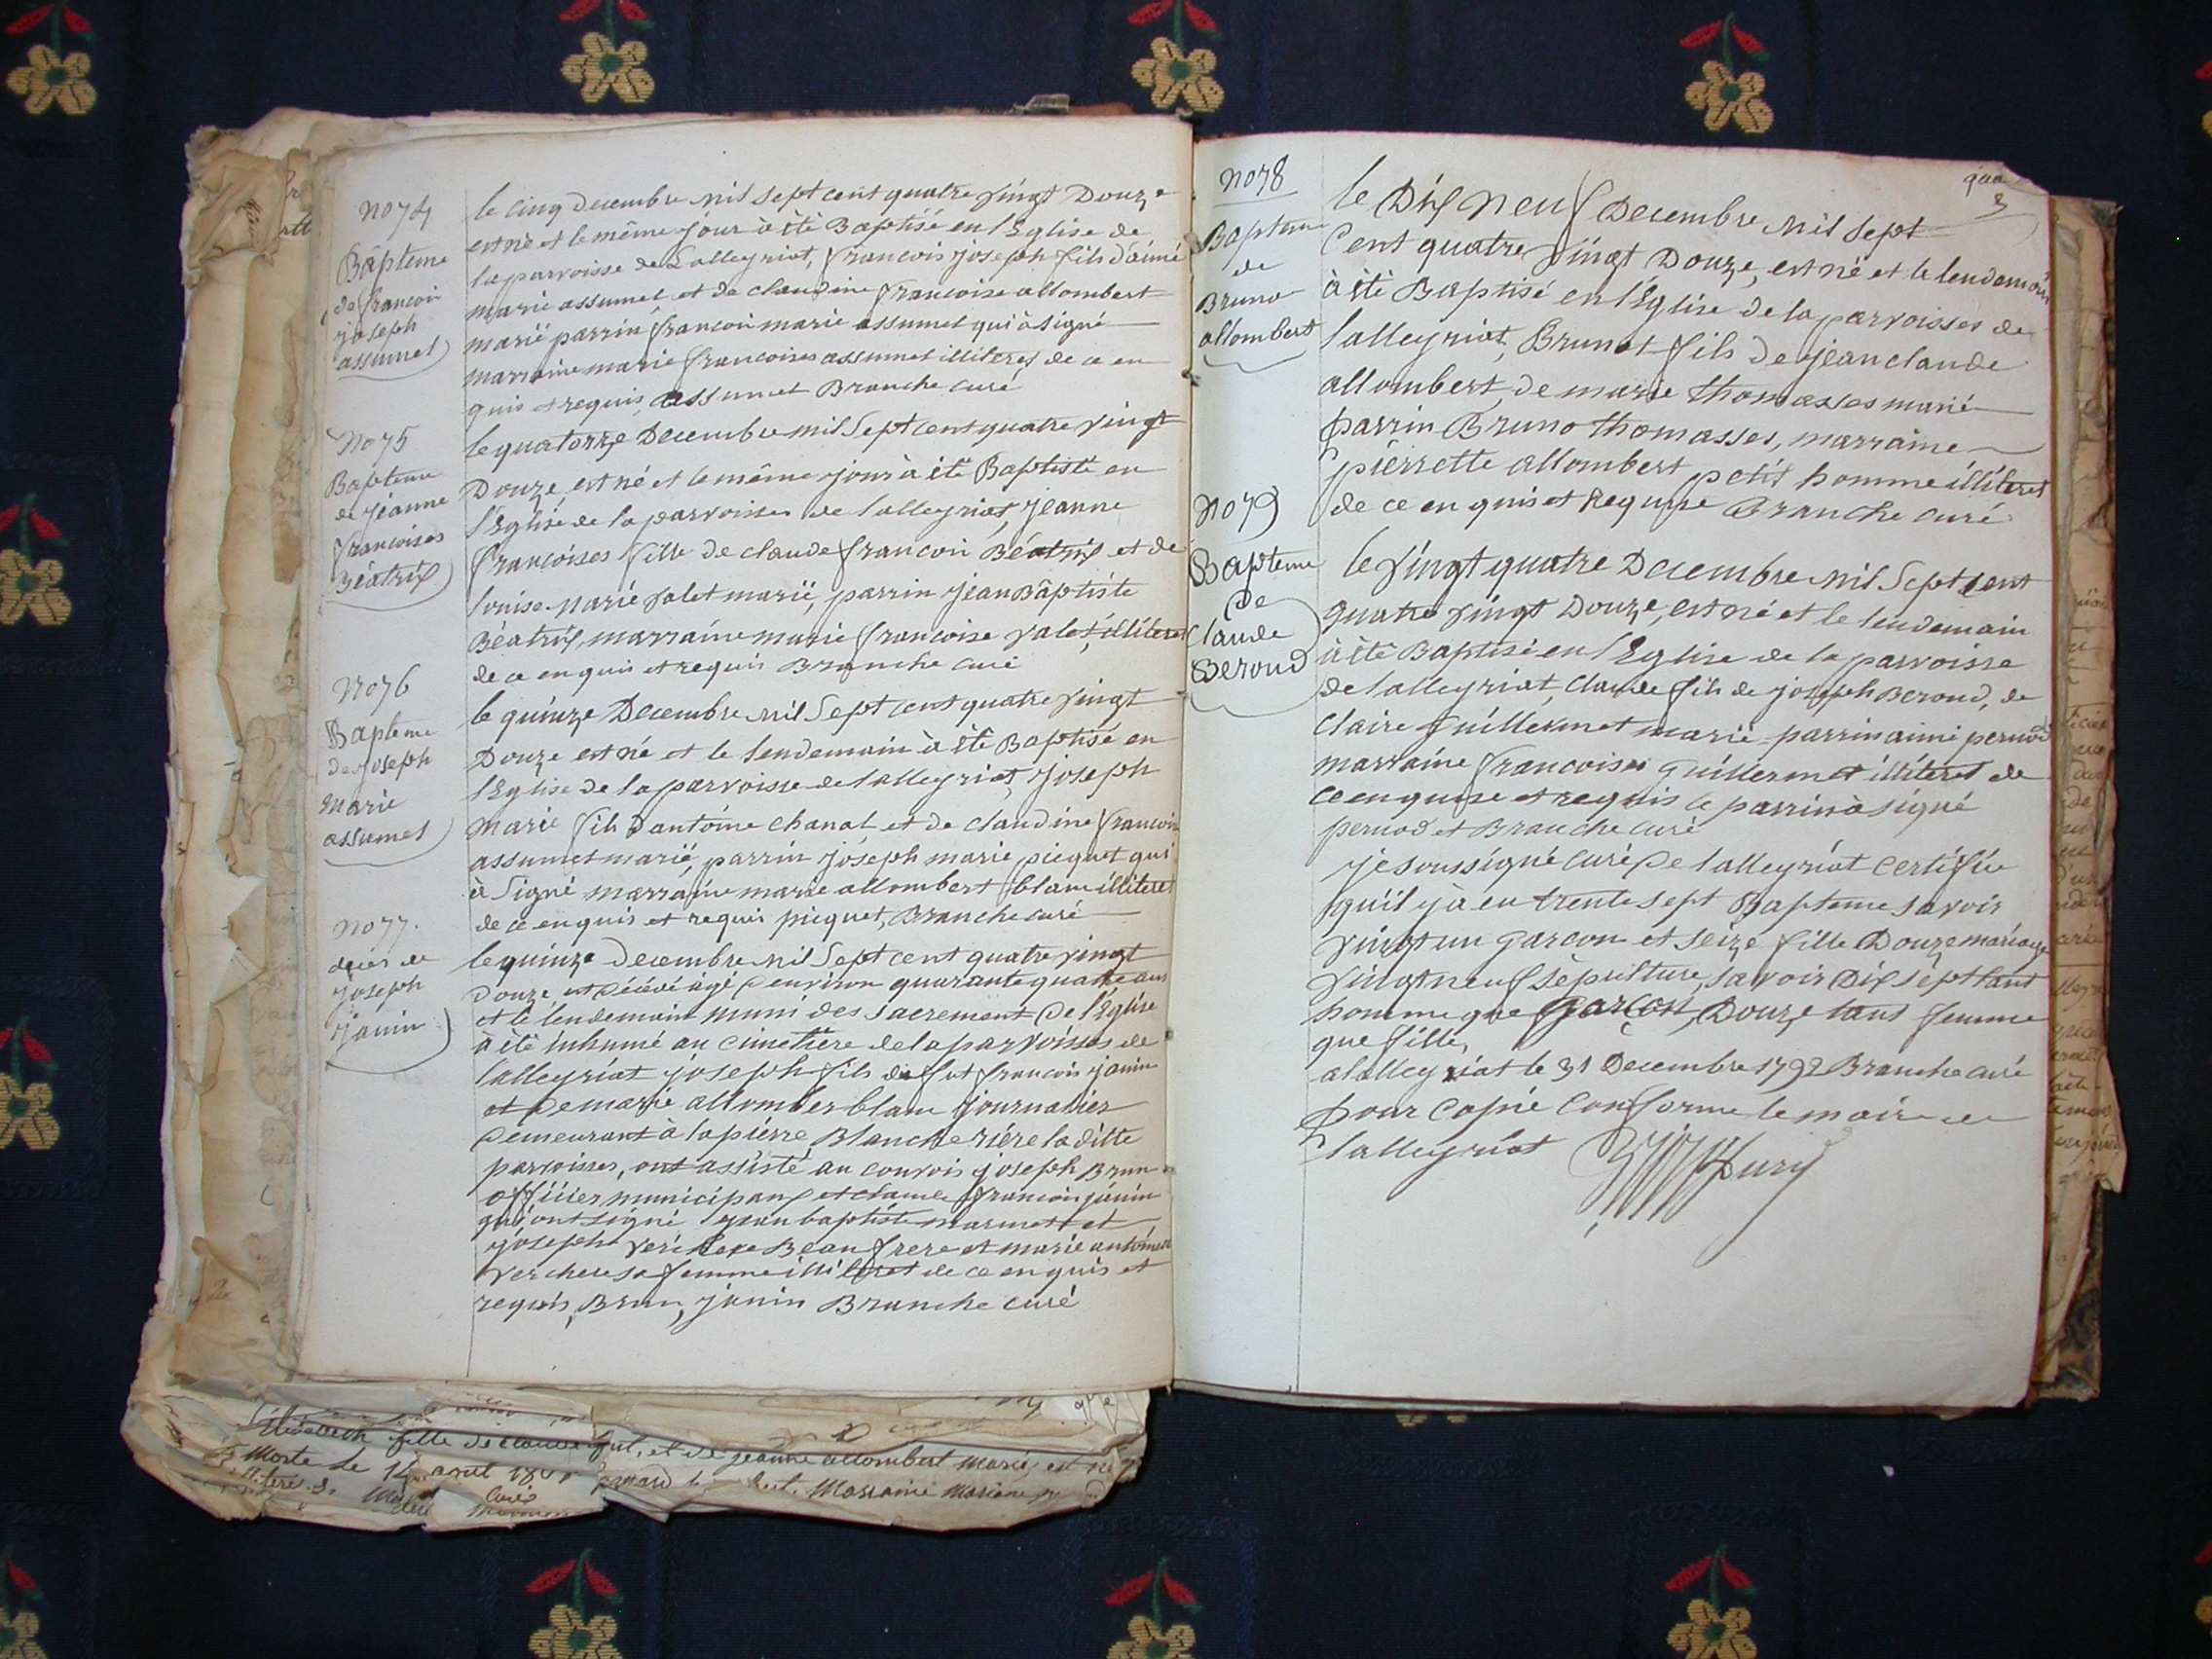 no 74
Bâpteme
de francoii
joseph
assumet
le cinq Decembre mil sept cent quatre vingt Douze
est né et le même jour à été Bâptisé en l'Eglise de
la parroisse de Lalleyriat, francois joseph fils d'aimé
marie assumet, et de claudine francoise allombert
marié parrin francoii marie assumet qui à signé
marraine marie francoises assumet illiteres de ce en
quis et requis assumet Branche curé
no 75
Bapteme
de jéanne
francoises
Béatrix
le quatorze Decembre mil Sept cent quatre vingt
Douze est né et le même jour à été Baptisté en
l'Eglise de la parroisses de lalleyriat, jeanne
francoises fille de claude francoii Béatrix et de
louise marie valet marié, parrin jean Bâptiste
Béatrix, marraine marie francoise valet, illiteres
de ce en quis et requis Branche curé
no 76
Bapteme
de joseph
marie
assumet
le quinze Decembre mil Sept cent quatre vingt
Douze est né et le lendemain à été Baptisé en
l'Eglise de la parroisse de lalleyriat, joseph
marie fils D'antoine chanal et de claudine francois
assumet marié, parrin joseph marie picquet qui
à Signé marraine marie allombert blanc illiteret
de ce en quis et requis picquet, Branche curé
no 77.
déces de
joseph
janin
le quinze Decembre mil Sept cent quatre vingt
Douze est décédé âgé d'environ quarante quatre ans
et le lendemain muni des sacrement de l'Eglise
à été inhumé au cimetiere de la parroisses de
lalleyriat joseph fils de fut francois janin
et de marie allomber blanc journalier
demeurant à la piérre Blanche riére la ditte
parroisses, ont assisté au convois joseph Brun
officier municipaux et claude francois janin
qui ont signé jean baptiste marmet et
joseph verchere Beau frere et marie antoinette
verchere sa femme illiteret de ce en quis et
requis, Brun, janin Branche curé
no 78
Bapteme
de
Bruno
allombert
le Dix neuf Decembre mil sept
Cent quatre vingt Douze, est né et le lendemain
à été Baptisé en l'Eglise de la parroisses de
lalleyriat, Brunot fils de jean claude
allombert, de marie thomasses marié
parrin Bruno thomasses, marraine
piérrette allombert petit homme illiteret
de ce en quis et Requise Branche curé
no 79
Bapteme
de
Claude
Beroud
le vingt quatre Decembre mil Sept cent
quatre vingt Douze, est né et le lendemain
à été Baptisé en l'Eglise de la parroisse
de lalleyriat, claude fils de joseph Beroud, de
claire guillermet marié parrin aimé pernod
marraine francoises guillermet illiteret de
ce en quise et requis le parrin à signé
pernod et Branche curé
je soussigné curé de lalleyriat certifie
qu'il y à eu trente sept Bapteme savoir
vingt un garcon et seize fille Douze mariage
vingt neuf sépulture, savoir Dix sept tant
homme que garçon, Douze tant femme
que fille,
a lalleyriat le 31 Decembre 1792 Branche curé
pour copie conforme le maire de
lalleyriat
fille de claude
et de jeanne allombert marié, est né
Morte le 14 avril
Marraine